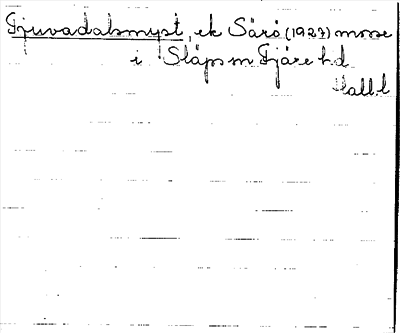 Tjuvadalsmyst, ek Särö (1927) mosse
i Släps sn Fjäre hd
Hall. l